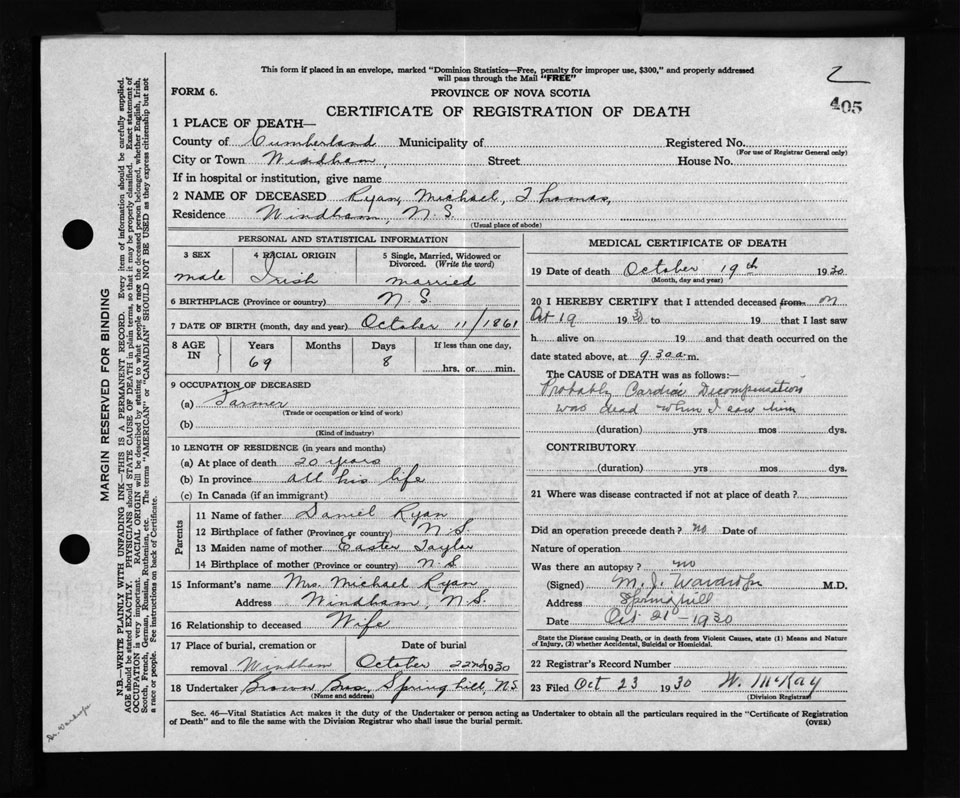 This form if placed in an envelope, marked "Dominion Statistics—Free, penalty for improper use, $300," and properly addressed
will pass through the Mail "FREE"
2
405
FORM 6.
PROVINCE OF NOVA SCOTIA
CERTIFICATE OF REGISTRATION OF DEATH
1 PLACE OF DEATH—
County of Cumberland Municipality of Registered No.
(For use of Registrar General only)
City or Town Windham, Street House No.
If in hospital or institution, give name
2 NAME OF DECEASED Ryan, Michael, Thomas,
Residence Windham, N.S.
(Usual place of abode)
PERSONAL AND STATISTICAL INFORMATION
3 SEX
male
4 RACIAL ORIGIN
Irish
5 Single, Married, Widowed or
Divorced. (Write the word)
married
6 BIRTHPLACE (Province or country) N.S.
7 DATE OF BIRTH (month, day and year) October 11/1861
8 AGE
IN
Years
69
Months
Days
8
If less than one day,
hrs. or min.
9 OCCUPATION OF DECEASED
(a) Farmer
(Trade or occupation or kind of work)
(b)
(Kind of industry)
10 LENGTH OF RESIDENCE (in years and months)
(a) At place of death 20 years
(b) In province all his life
(c) In Canada (if an immigrant)
Parents
11 Name of father Daniel Ryan
12 Birthplace of father (Province or country) N.S.
13 Maiden name of mother Easter Taylor
14 Birthplace of mother (Province or country) N.S.
15 Informant's name Mrs. Michael Ryan
Address Windham, N.S.
16 Relationship to deceased Wife
17 Place of burial, cremation or
removal Windham
Date of burial
October 22nd 1930
18 Undertaker Brown Bros, Springhill, N.S.
(Name and address)
MEDICAL CERTIFICATE OF DEATH
19 Date of death October 19th 1930
(Month, day and year)
20 I HEREBY CERTIFY that I attended deceased from on
Oct 19 1930 to 19 that I last saw
h alive on 19 and that death occurred on the
date stated above, at 9.30 a.m.
The CAUSE of DEATH was as follows:—
Probably Cardiac Decompensation
was dead when I saw him
(duration) yrs mos dys.
CONTRIBUTORY
(duration) yrs mos dys.
21 Where was disease contracted if not at place of death?
Did an operation precede death? no Date of
Nature of operation
Was there an autopsy? no
(Signed) M. J. Wardrope M.D.
Address Springhill
Date Oct. 21 - 1930
State the Disease causing Death, or in death from Violent Causes, state (1) Means and Nature
of Injury, (2) whether Accidental, Suicidal or Homicidal.
22 Registrar's Record Number
23 Filed Oct 23 1930 W. McKay
(Division Registrar)
Sec. 46—Vital Statistics Act makes it the duty of the Undertaker or person acting as Undertaker to obtain all the particulars required in the "Certificate of Registration
of Death" and to file the same with the Division Registrar who shall issue the burial permit.
(OVER)
MARGIN RESERVED FOR BINDING
N.B.—WRITE PLAINLY WITH UNFADING INK—THIS IS A PERMANENT RECORD. Every item of information should be carefully supplied.
AGE should be stated EXACTLY. PHYSICIANS should STATE CAUSE OF DEATH in plain terms, so that it may be properly classified. Exact statement of
OCCUPATION is very important. RACIAL ORIGIN will be described by stating to what people or race the deceased person belonged, whether English, Irish,
Scotch, French, German, Russian, Ruthenian, etc. The terms "AMERICAN" or "CANADIAN" SHOULD NOT BE USED as they express citizenship but not
a race or people. See instructions on back of Certificate.